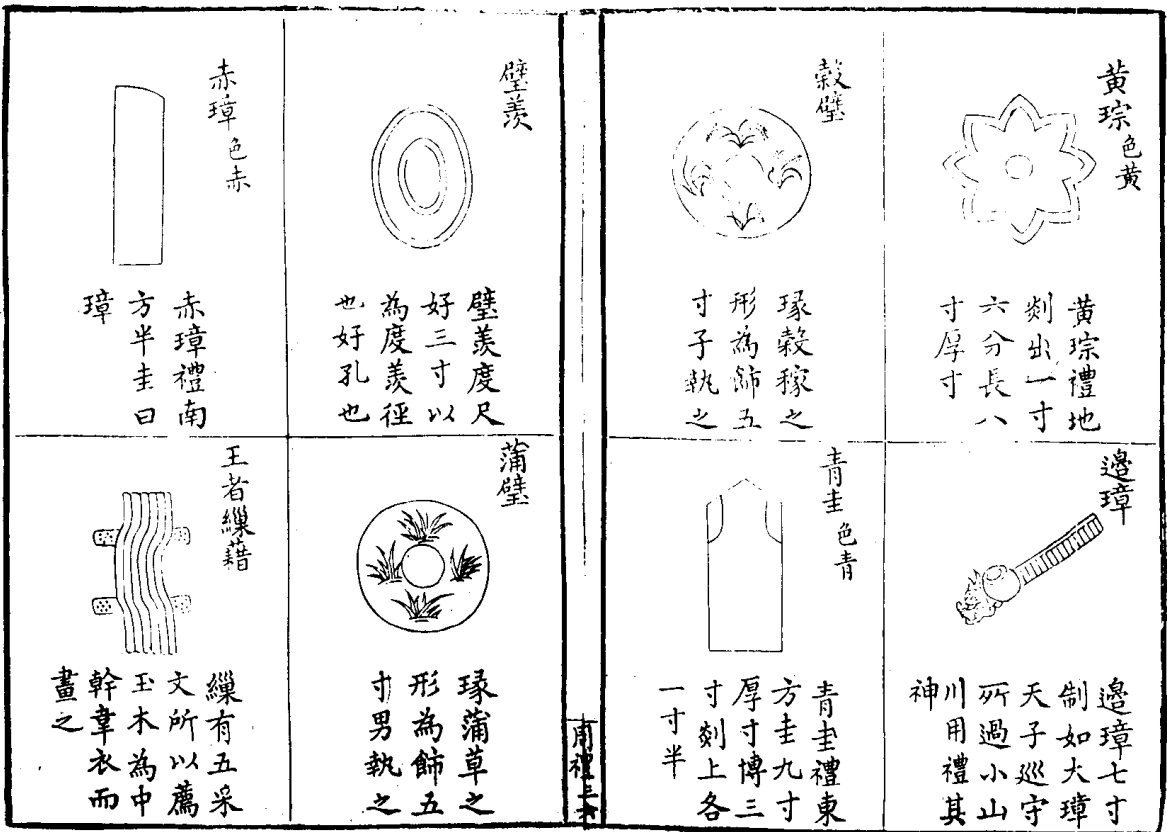 黄琮色黄
黄琮禮地
剡出一寸
六分長八
寸厚寸
邉璋
邉璋七寸
制如大璋
天子巡守
所過小山
川用禮其
神
穀璧
瑑穀稼之
形為飾五
寸子執之
青圭色青
青圭禮東
方圭九寸
厚寸博三
寸剡上各
一寸半
周禮三
璧羨
璧羨度尺
好三寸以
為度羨徑
也好孔也
蒲璧
瑑蒲草之
形為飾五
寸男執之
赤璋色赤
赤璋禮南
方半圭曰
璋
王者繅藉
繅有五采
文所以薦
玉木為中
幹韋衣而
畫之